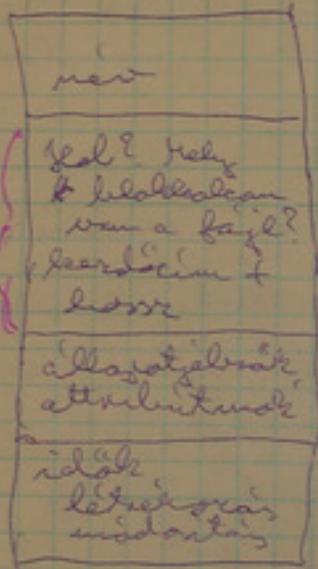 név
Hol? Mely
blokkokban
van a fájl?
kezdőcím +
hossz
állapotjelzők
attribútumok
idők
létrehozás
módosítás